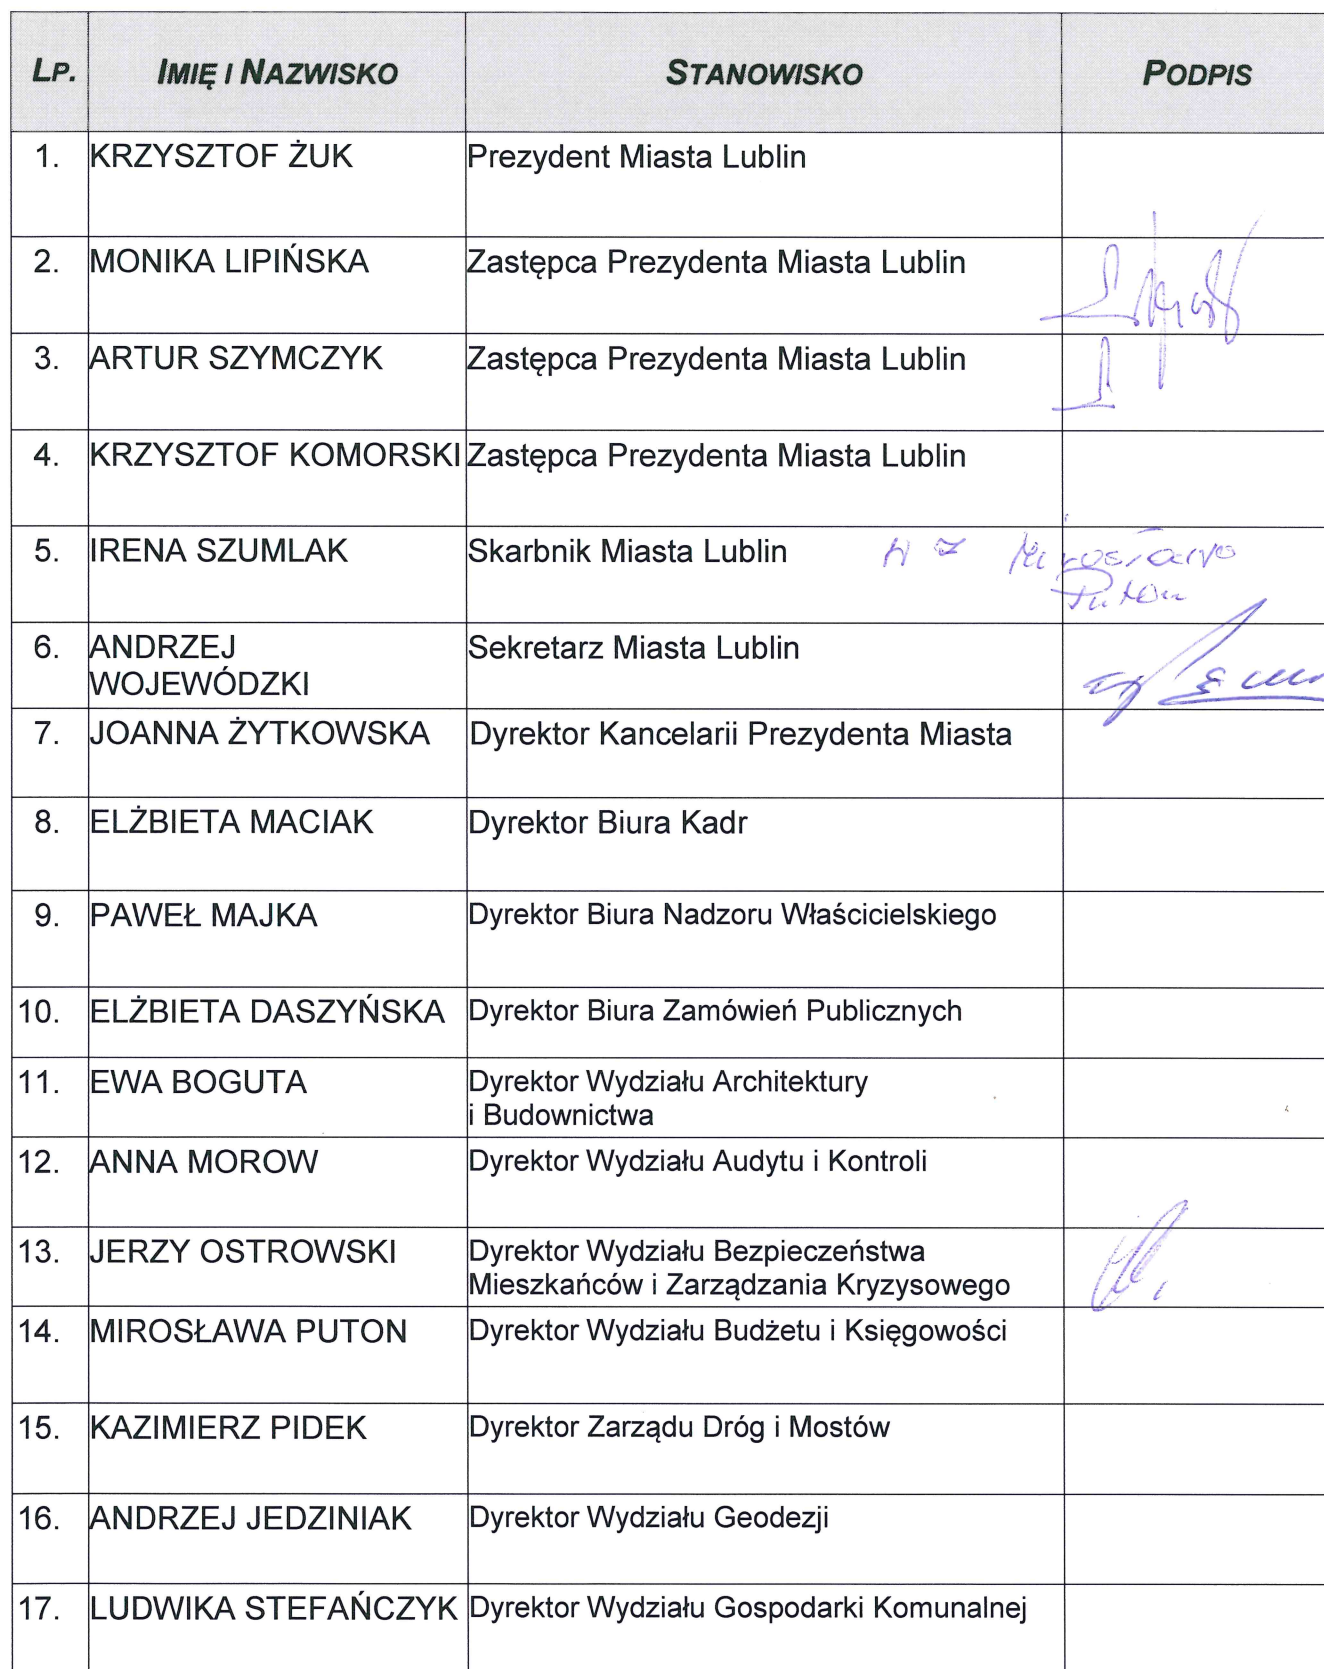 LP. IMIĘ I NAZWISKO STANOWISKO PODPIS
1. KRZYSZTOF ŻUK Prezydent Miasta Lublin
2. MONIKA LIPIŃSKA Zastępca Prezydenta Miasta Lublin
3. ARTUR SZYMCZYK Zastępca Prezydenta Miasta Lublin
4. KRZYSZTOF KOMORSKI Zastępca Prezydenta Miasta Lublin
5. IRENA SZUMLAK Skarbnik Miasta Lublin Mirosława
Puton
6. ANDRZEJ Sekretarz Miasta Lublin
WOJEWÓDZKI
7. JOANNA ŻYTKOWSKA Dyrektor Kancelarii Prezydenta Miasta
8. ELŻBIETA MACIAK Dyrektor Biura Kadr
9. PAWEŁ MAJKA Dyrektor Biura Nadzoru Właścicielskiego
10. ELŻBIETA DASZYŃSKA Dyrektor Biura Zamówień Publicznych
11. EWA BOGUTA Dyrektor Wydziału Architektury
i Budownictwa
12. ANNA MOROW Dyrektor Wydziału Audytu i Kontroli
13. JERZY OSTROWSKI Dyrektor Wydziału Bezpieczeństwa
Mieszkańców i Zarządzania Kryzysowego
14. MIROSŁAWA PUTON Dyrektor Wydziału Budżetu i Księgowości
15. KAZIMIERZ PIDEK Dyrektor Zarządu Dróg i Mostów
16. ANDRZEJ JEDZINIAK Dyrektor Wydziału Geodezji
17. LUDWIKA STEFAŃCZYK Dyrektor Wydziału Gospodarki Komunalnej